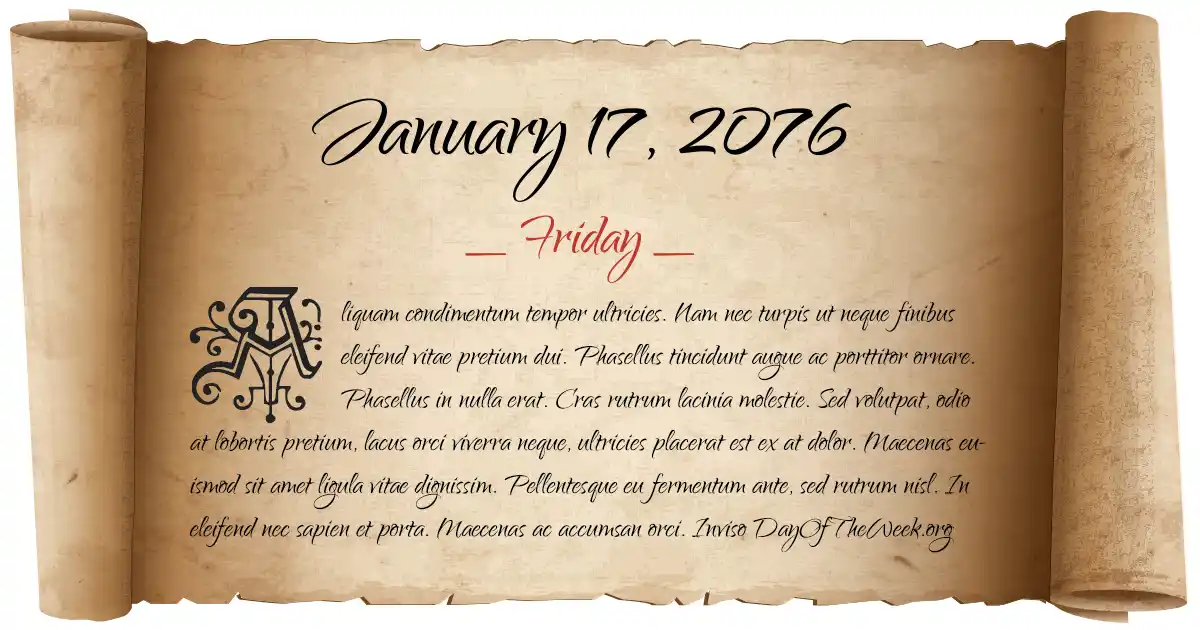 January 17, 2076
Friday
Aliquam condimentum tempor ultricies. Nam nec turpis ut neque finibus
eleifend vitae pretium dui. Phasellus tincidunt augue ac porttitor ornare.
Phasellus in nulla erat. Cras rutrum lacinia molestie. Sed volutpat, odio
at lobortis pretium, lacus orci viverra neque, ultricies placerat est ex at dolor. Maecenas eu-
ismod sit amet ligula vitae dignissim. Pellentesque eu fermentum ante, sed rutrum nisl. In
eleifend nec sapien et porta. Maecenas ac accumsan orci. Inviso DayOfTheWeek.org